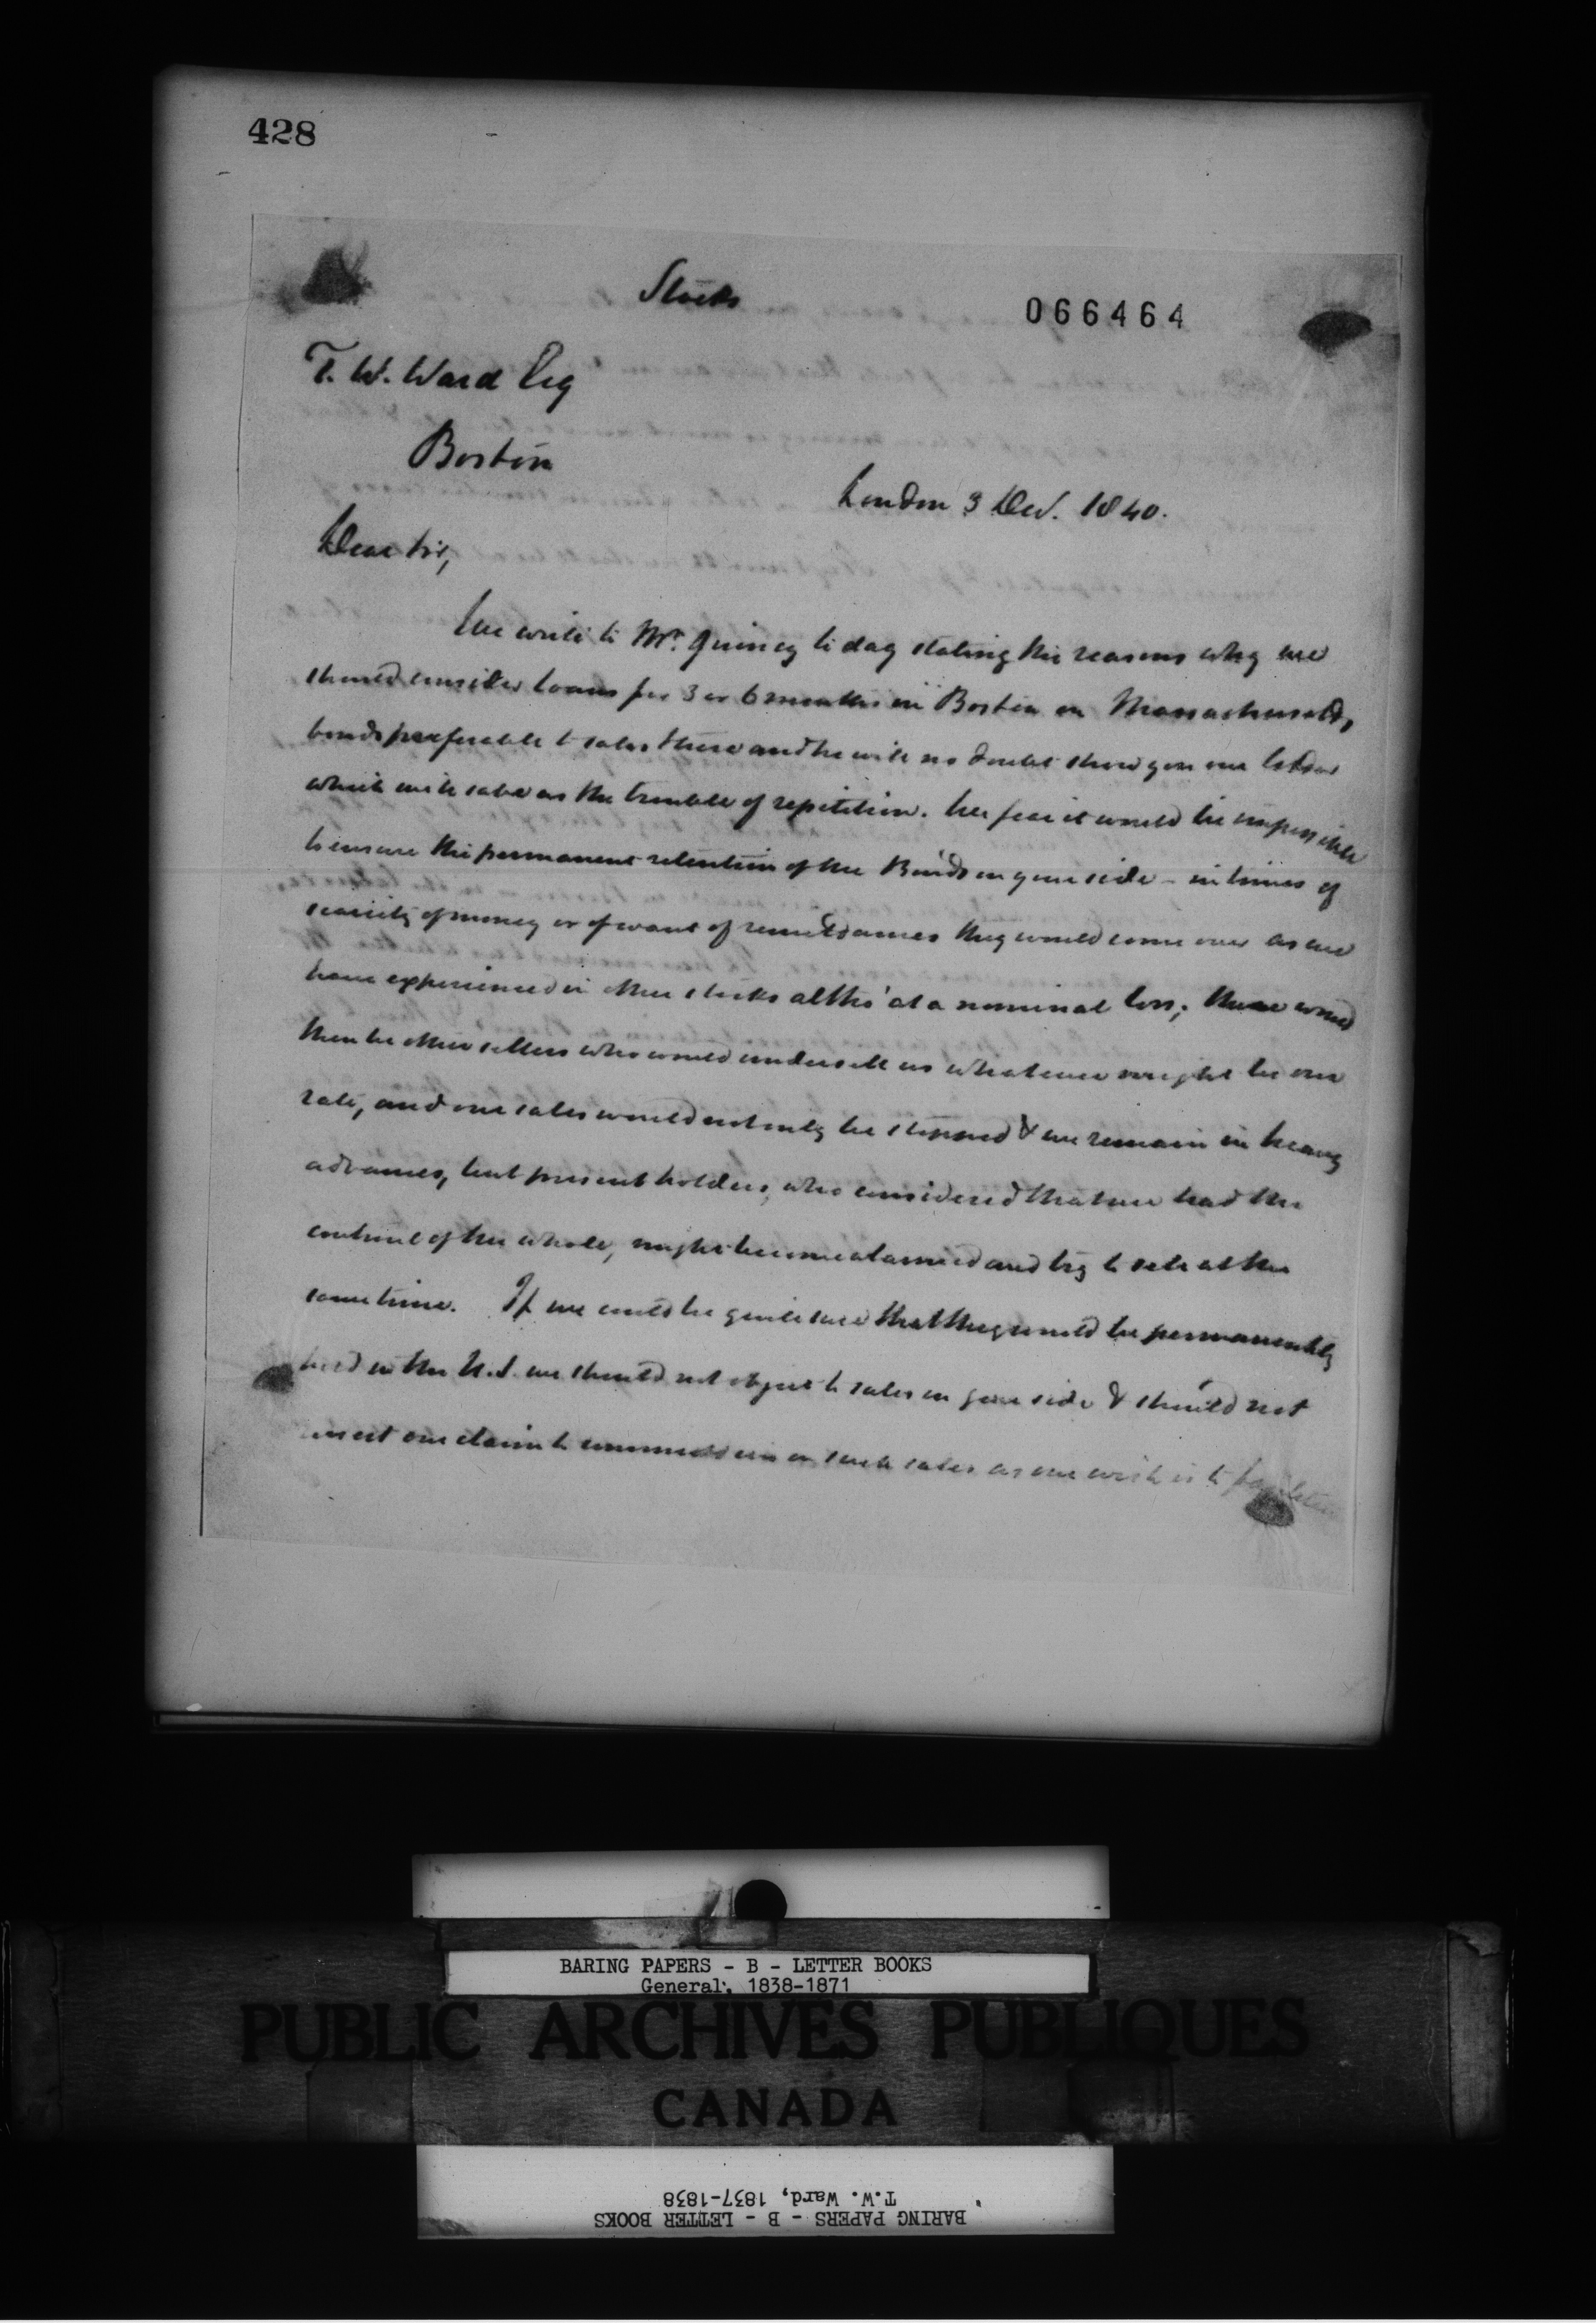 428
Stocks
066464
T. W. Ward Esq
Boston
London 3 Dec. 1840.
Dear Sir,
We write to Mr. Quincy to day stating the reasons why we
should consider loans for 3 or 6 months in Boston on Massachusetts
bonds preferable to sales there and he will no doubt show you our letter
which will save us the trouble of repetition. We fear it would be impossible
to ensure the permanent retention of the Bonds on your side - in times of
scarcity of money or of want of remittances they would come over as we
have experienced in other stocks altho' at a nominal loss; there would
then be other sellers who would undersell us whatever might be our
rate, and our sales would not only be stopped & we remain in heavy
advances, but present holders, who considered that we had the
control of the whole, might become alarmed and try to sell at the
same time. If we could be quite sure that they would be permanently
held in the U.S. we should not object to sales on your side & should not
our claim to commission on such sales as our wish is to
BARING PAPERS - B - LETTER BOOKS
General, 1838-1871
PUBLIC ARCHIVES PUBLIQUES
CANADA
T.W. Ward, 1837-1838
BARING PAPERS - B - LETTER BOOKS